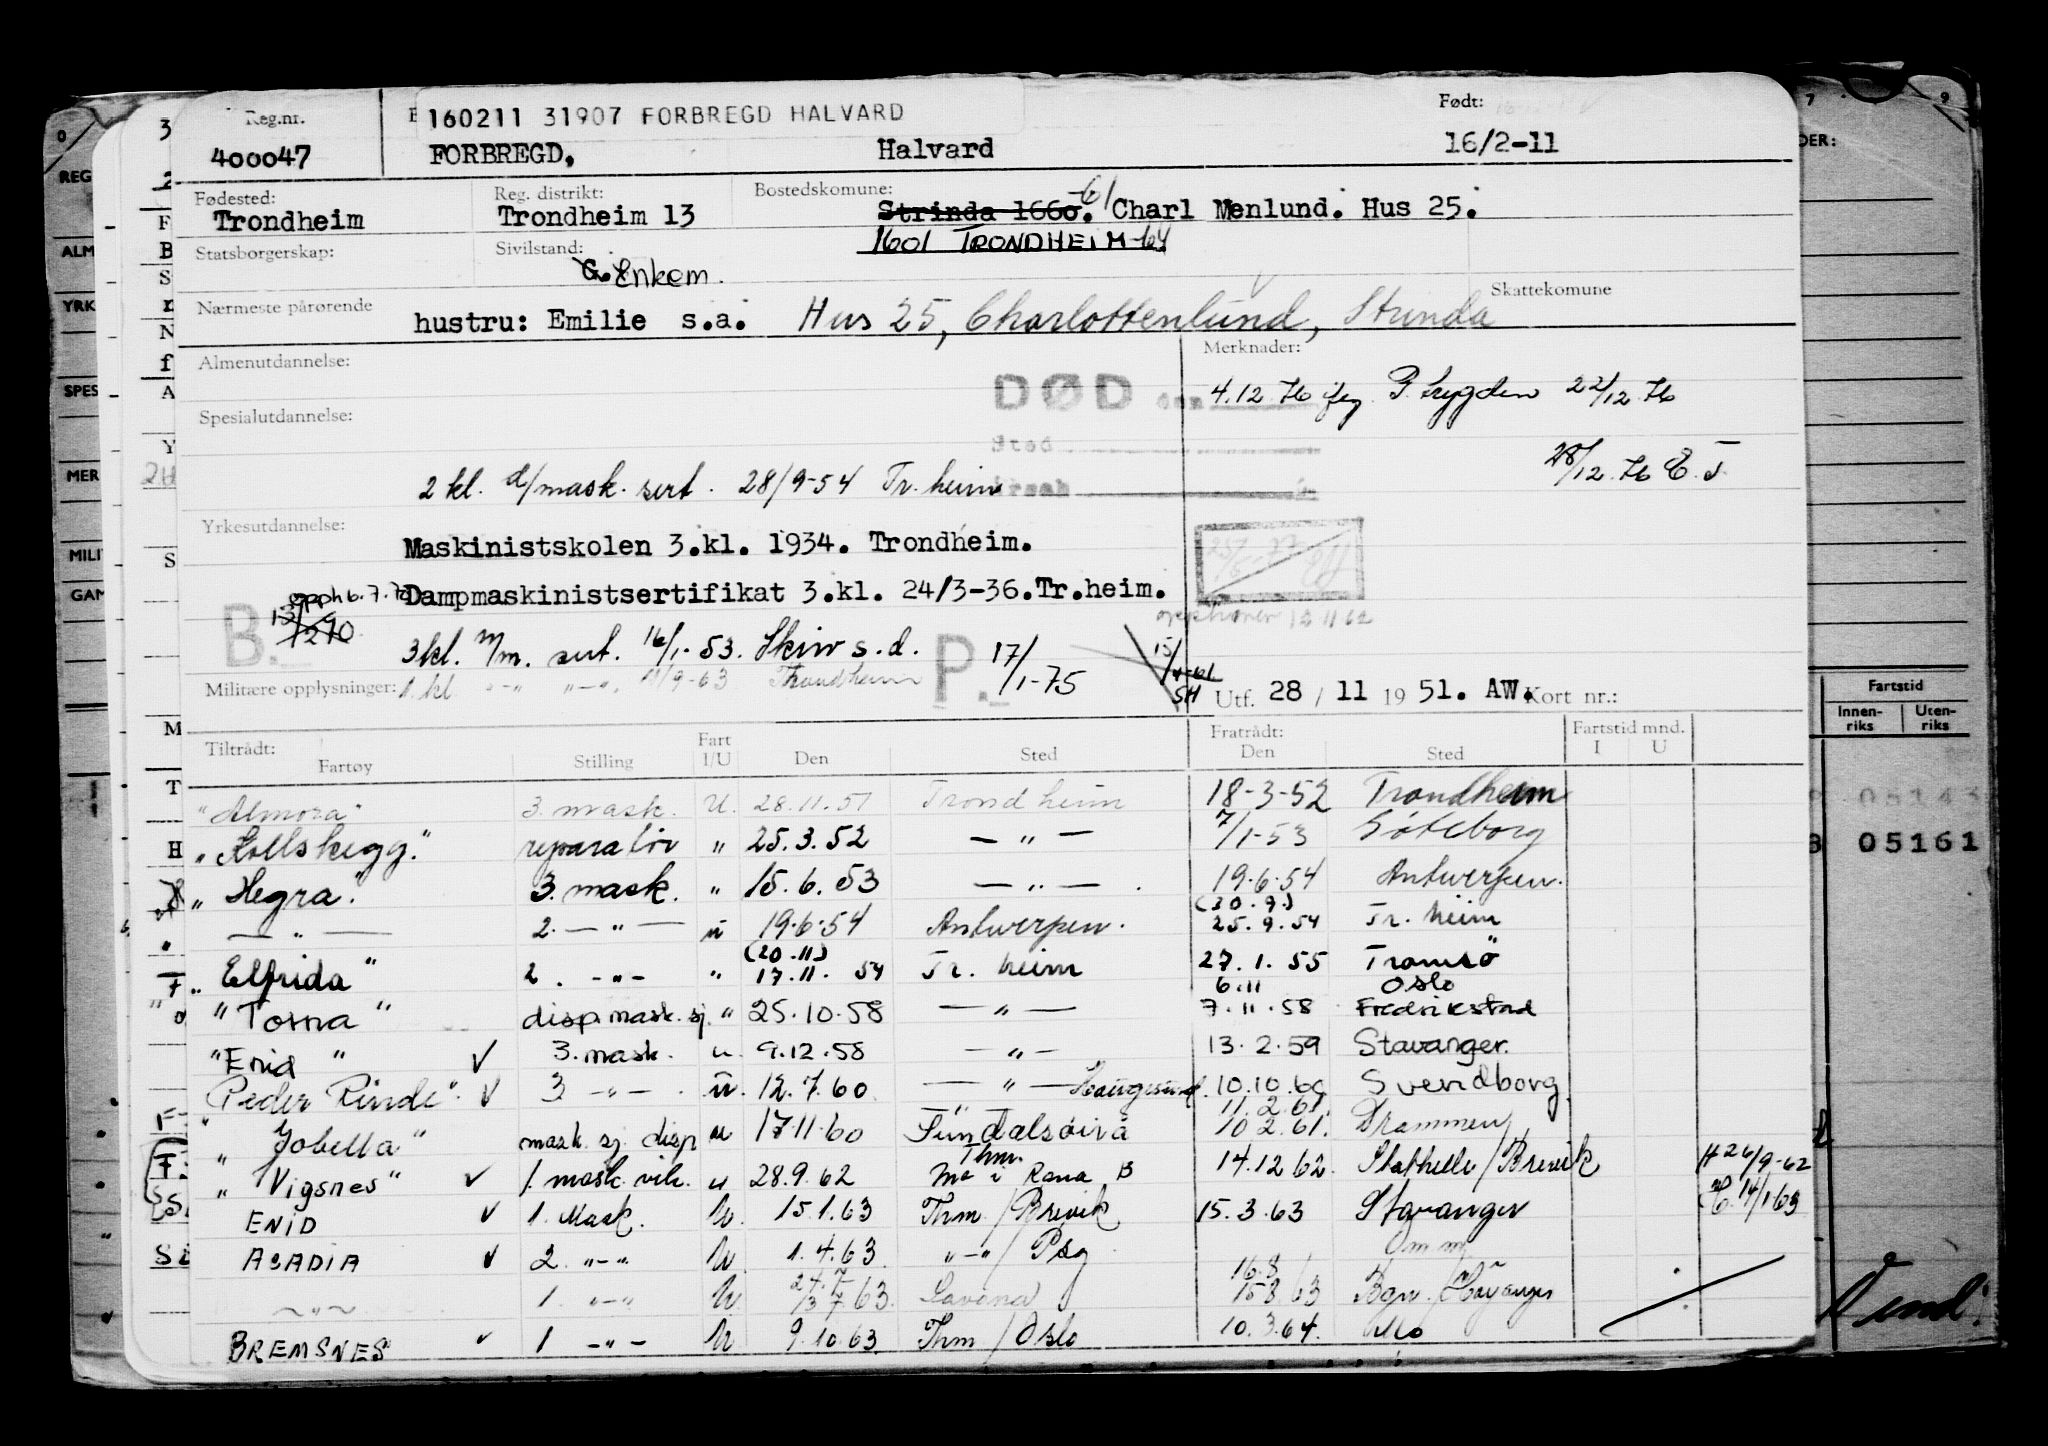 Reg.nr.
160211 31907 FORBREGD HALVARD
Født:
400047 FORBREGD, Halvard 16/2-11
Fødested: Reg. distrikt: Bostedskomune:
Trondheim Trondheim 13 Strinda 1660. 61 Charl Menlund. Hus 25.
1601 TRONDHEIM-64
Statsborgerskap: Sivilstand:
G. Enkem.
Nærmeste pårørende Skattekomune
hustru: Emilie s.a. Hus 25, Charlottenlund, Strinda
Almenutdannelse: Merknader:
DØD den 4.12.76 jfg. P. trygden 22/12.76
Spesialutdannelse:
Sted
28/12.76 E.T.
2 kl. d/mask. sert. 28/9-54 Tr.heim
Årsak
Yrkesutdannelse:
Maskinistskolen 3.kl. 1934. Trondheim.
opph 6.7.
Dampmaskinistsertifikat 3.kl. 24/3-36. Tr.heim.
B.
3kl. m/m. sert. 16/1-53. Skiw s.d. P. 17/1-75
Militære opplysninger: 1.kl. -"- -"- 11/9-63 Trondheim
15/4-61 SH
Utf. 28 / 11 19 51. AW. Kort nr.:
Tiltrådt: Fratrådt: Fartstid mnd.
Fartøy Stilling Fart I/U Den Sted Den Sted I U
"Almora" 3. mask. U. 28.11.51 Trondheim 18-3-52 Trondheim
"Kollskegg." reparatör " 25.3.52 — " — 7/1-53 Göteborg
"Hegra. 3. mask. " 15.6.53 — " — 19.6.54 Antwerpen.
— " — 2. — " — u 19.6.54 Antwerpen. (30.9.) 25.9.54 Tr. heim
"Elfrida" 2. -"- " (20.11) 17.11.54 Tr. heim 27.1.55 Tromsö
"Torna" disp. mask. sj. " 25.10.58 — " — 6.11 Oslo 7.11.58 Fredrikstad
"Enid" ✓ 3. mask. u. 9.12.58 — " — 13.2.59 Stavanger.
"Peder Rinde" ✓ 3 -"- u. 12.7.60 — " — Haugesund. 10.10.60 Svendborg
"Jobella" mask. sj. disp u 17.11.60 11.2.61. 10.2.61. Drammen
"Vigsnes" ✓ 1. mask. vik. u 28.9.62 Thm. Mo i Rana B 14.12.62. Stathelle/Brevik H 26/9-62
ENID ✓ 1. Mask. U. 15.1.63 Thm / Brevik 15.3.63 Stavanger H. 14/1 63
ACADIA ✓ 2. -"- U 1.4.63 -"- / Psg Om m.
-"- 1. -"- U 24.7 13.7.63. Savona 16.8 15.8.63 Bgn. / Höyanger
BREMSNES ✓ 1 -"- U 9.10.63 Thm / Oslo 10.3.64. Oslo
Vend!
REG
ALM
YRK
SPES
MER
GAM
Fartstid
Innenriks Utenriks
05161